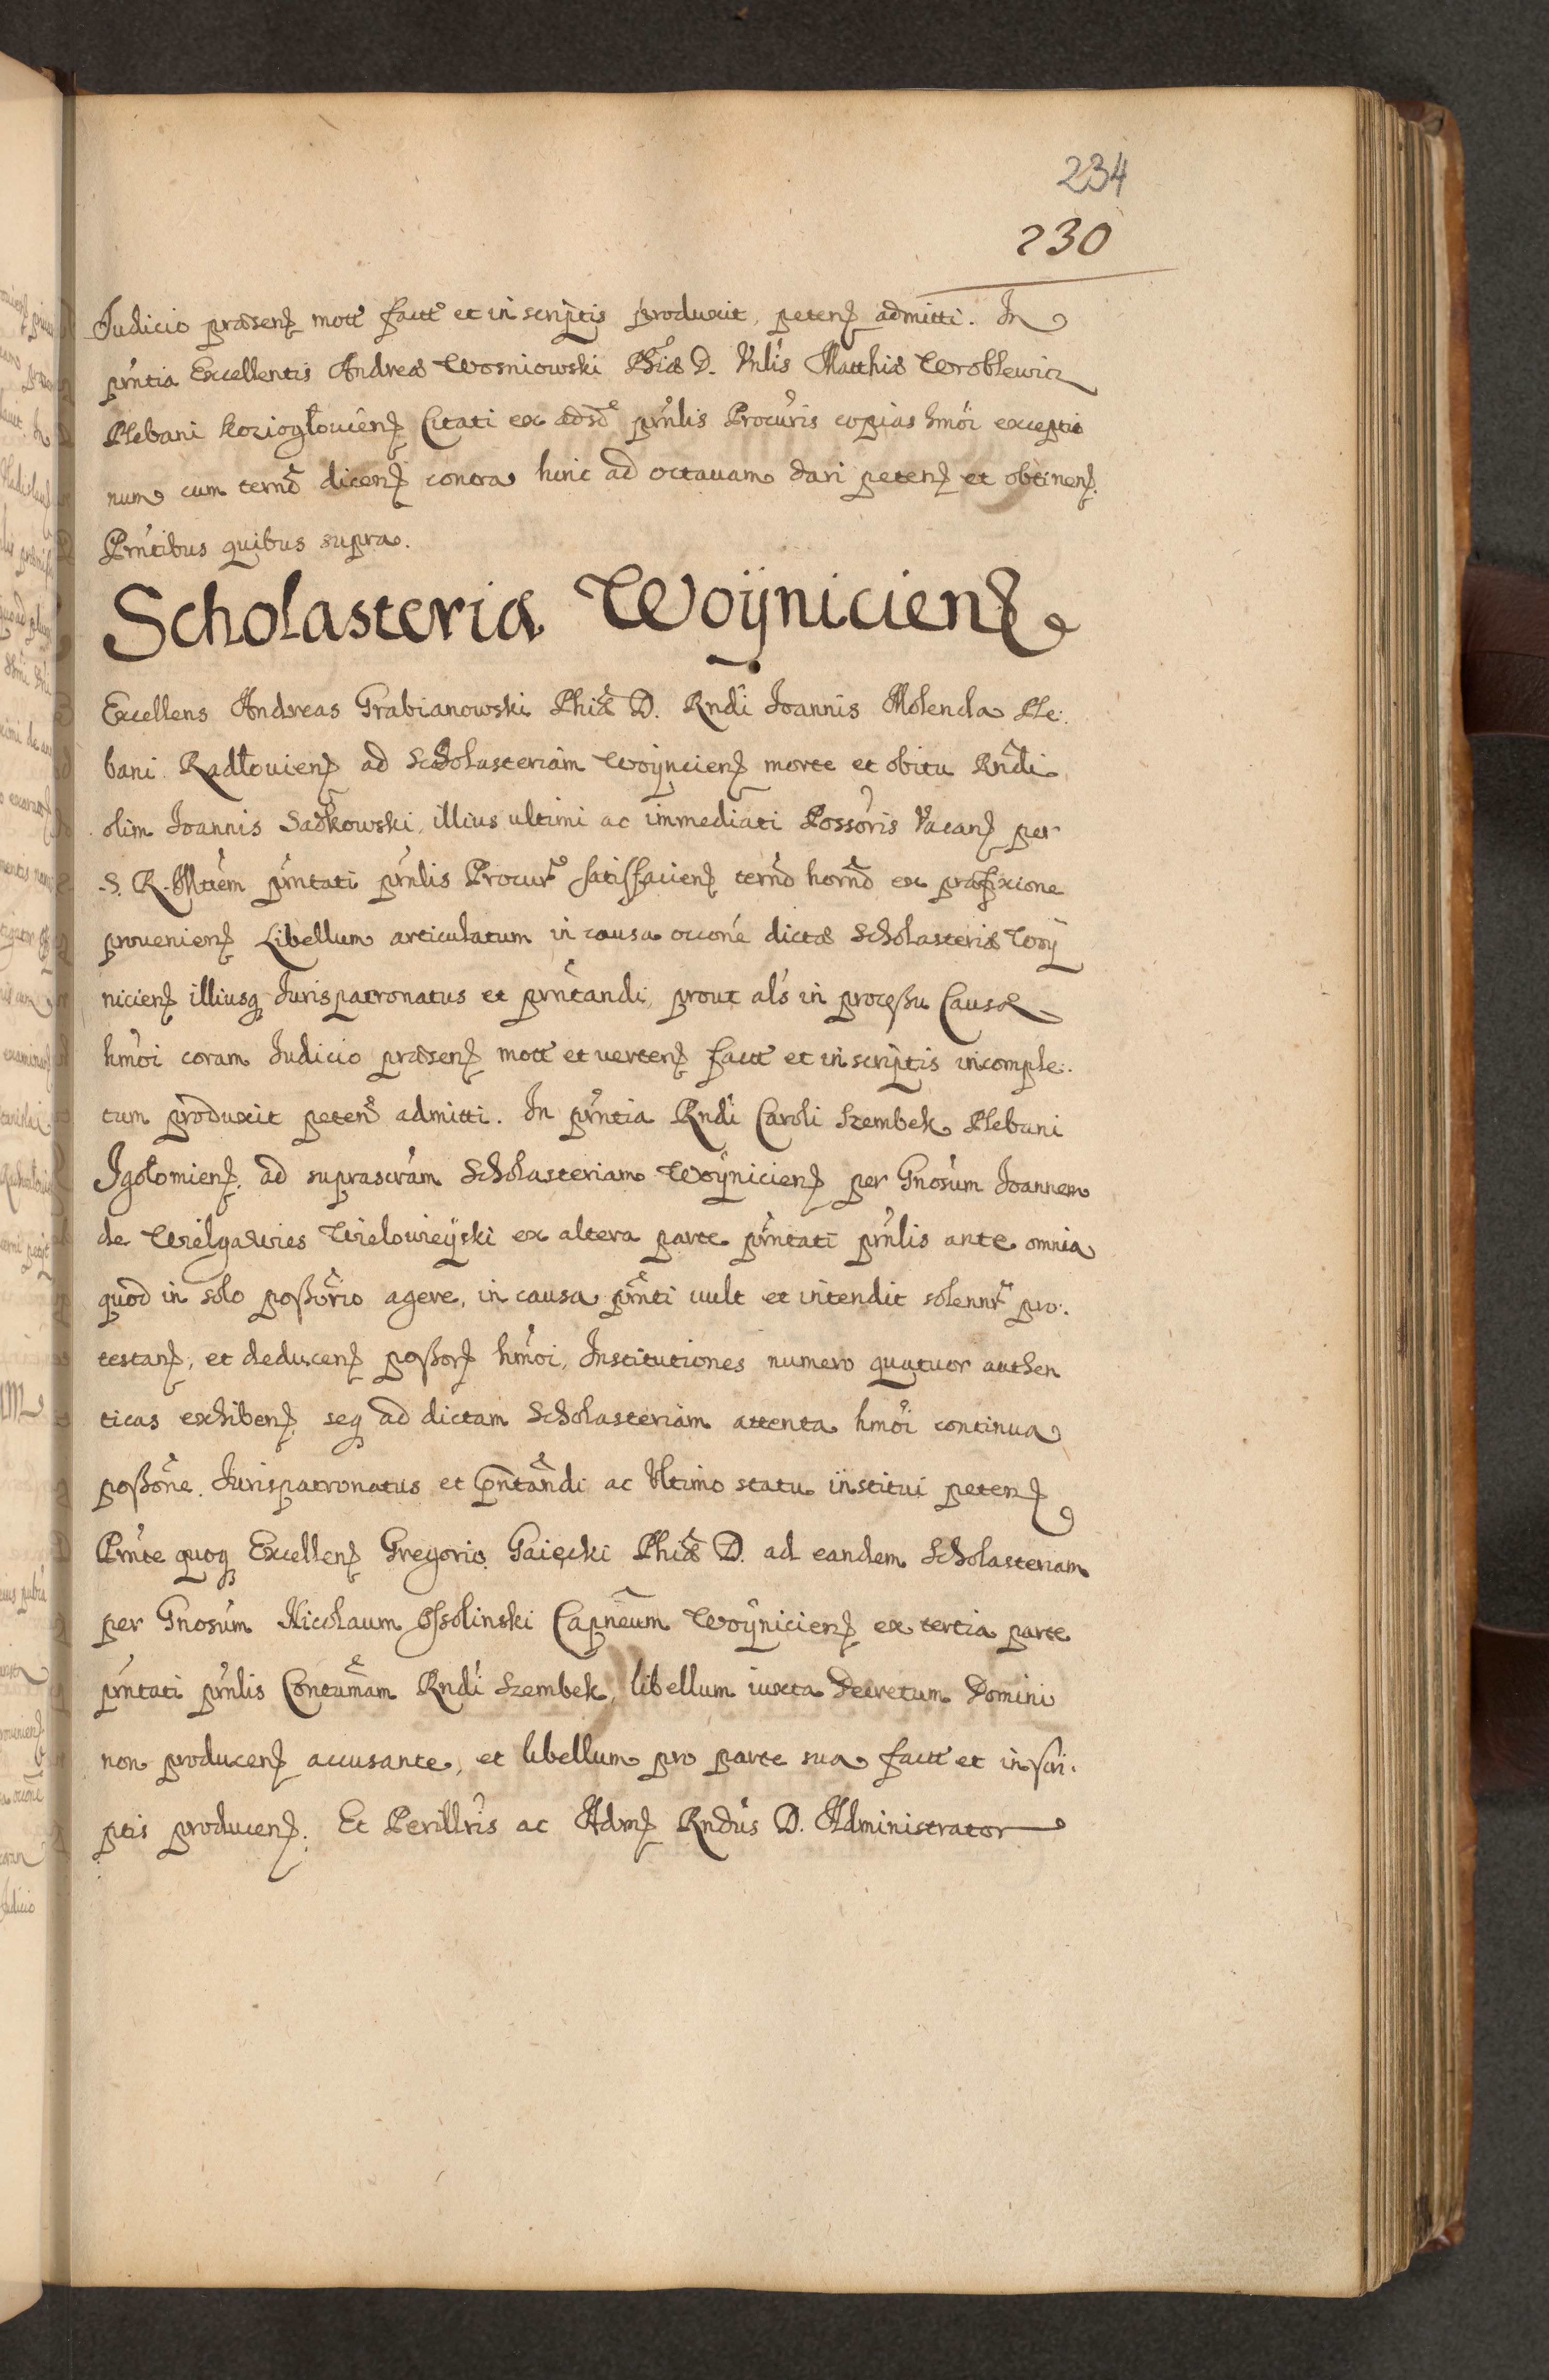 234
230
Iudicio præsenꝫ mott factt et in scriptis produxit, petenꝫ admitti. In
pńntia Excellentis Andreæ Wosniowski Phiæ D. Vnlis Matthiæ Wroblewicz
Plebani Koziogłouienꝫ Citati ex aduso pńnlis Procuris copias hmoi exceptio
num cum termo dicenꝫ contra hinc ad octauam dari petenꝫ et obtinenꝫ.
Pńntibus quibus supra.
Scholasteria Woÿnicienꝫ
Excellens Andreas Grabianowski Phiæ D. Rndi Ioannis Molenda Ple:
bani Radłouienꝫ ad Scholasteriam Woÿnicienꝫ morte et obitu Rndi
olim Ioannis Sadkowski, illius ultimi ac immediati Possoris Vacanꝫ per
S. R. Mttem pńntati pńnlis Procur satisfacienꝫ termo horno ex præfixione
prouenienꝫ Libellum articulatum in causa occone dictæ Scholasteriæ Woÿ
nicienꝫ illiusq Iurispatronatus et pńntandi, prout als in processu Causæ
hmoi coram Iudicio præsenꝫ mott et vertenꝫ factt et in scriptis incomple:
tum produxit petens admitti. In pńntia Rndi Caroli Szembek Plebani
Igołomienꝫ, ad suprascram Scholasteriam Woÿnicienꝫ per Gnosum Ioannem
de Wielgawies Wielowieÿski ex altera parte pńntati pńnlis ante omnia
quod in solo possorio agere, in causa pńnti uult et intendit solennr pro:
testanꝫ, et deducenꝫ possorꝫ hmoi, Institutiones numero quatuor authen
ticas exhibenꝫ, seq ad dictam Scholasteriam attenta hmoi continua
possone Iurispatronatus et pńntandi ac Vltimo statu institui petenꝫ
Pńnte quoq Excellenꝫ Gregorio Gaięcki Phiæ D. ad eandem Scholasteriam
per Gnosum Nicolaum Ossolinski Capneum Woÿnicienꝫ ex tertia parte
pńntati pńnlis Contumam Rndi Szembek, libellum iuxta Decretum Domini
non producenꝫ accusante, et libellum pro parte sua factt et in scri:
ptis producenꝫ. Et Perillris ac Admꝫ Rndus D. Administrator